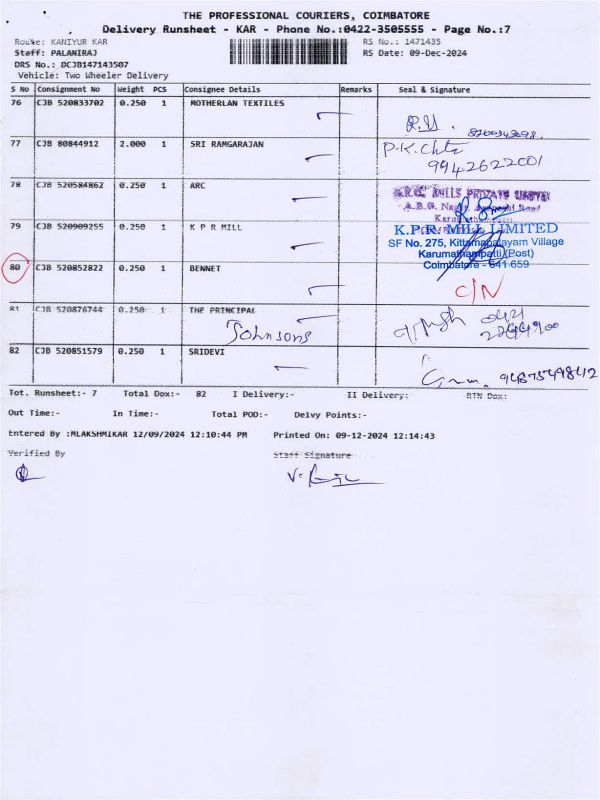 THE PROFESSIONAL COURIERS, COIMBATORE
Delivery Runsheet - KAR - Phone No.:0422-3505555 - Page No.:7
Route: KANIYUR KAR RS No.: 1471435
Staff: PALANIRAJ RS Date: 09-Dec-2024
DRS No.: DCJB147143507
Vehicle: Two Wheeler Delivery
S No Consignment No Weight PCS Consignee Details Remarks Seal & Signature
76 CJB 520833702 0.250 1 MOTHERLAN TEXTILES
77 CJB 80844912 2.000 1 SRI RAMGARAJAN
9942622001
78 CJB 520584862 0.250 1 ARC
MILLS PRIVATE LIMITED
79 CJB 520909255 0.250 1 K P R MILL
K.P.R. MILL LIMITED
SF No. 275, Kittampalayam Village
Karumathampatti (Post)
Coimbatore - 641 659
80 CJB 520852822 0.250 1 BENNET
C/N
81 CJB 520876744 0.250 1 THE PRINCIPAL
Johnsons
82 CJB 520851579 0.250 1 SRIDEVI
Tot. Runsheet:- 7 Total Dox:- 82 I Delivery:- II Delivery:- RTN Dox:
Out Time:- In Time:- Total POD:- Delvy Points:-
Entered By :MLAKSHMIKAR 12/09/2024 12:10:44 PM Printed On: 09-12-2024 12:14:43
Verified By Staff Signature